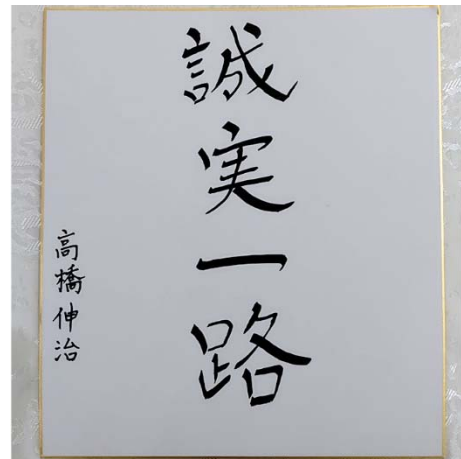 誠実一路
高橋伸治